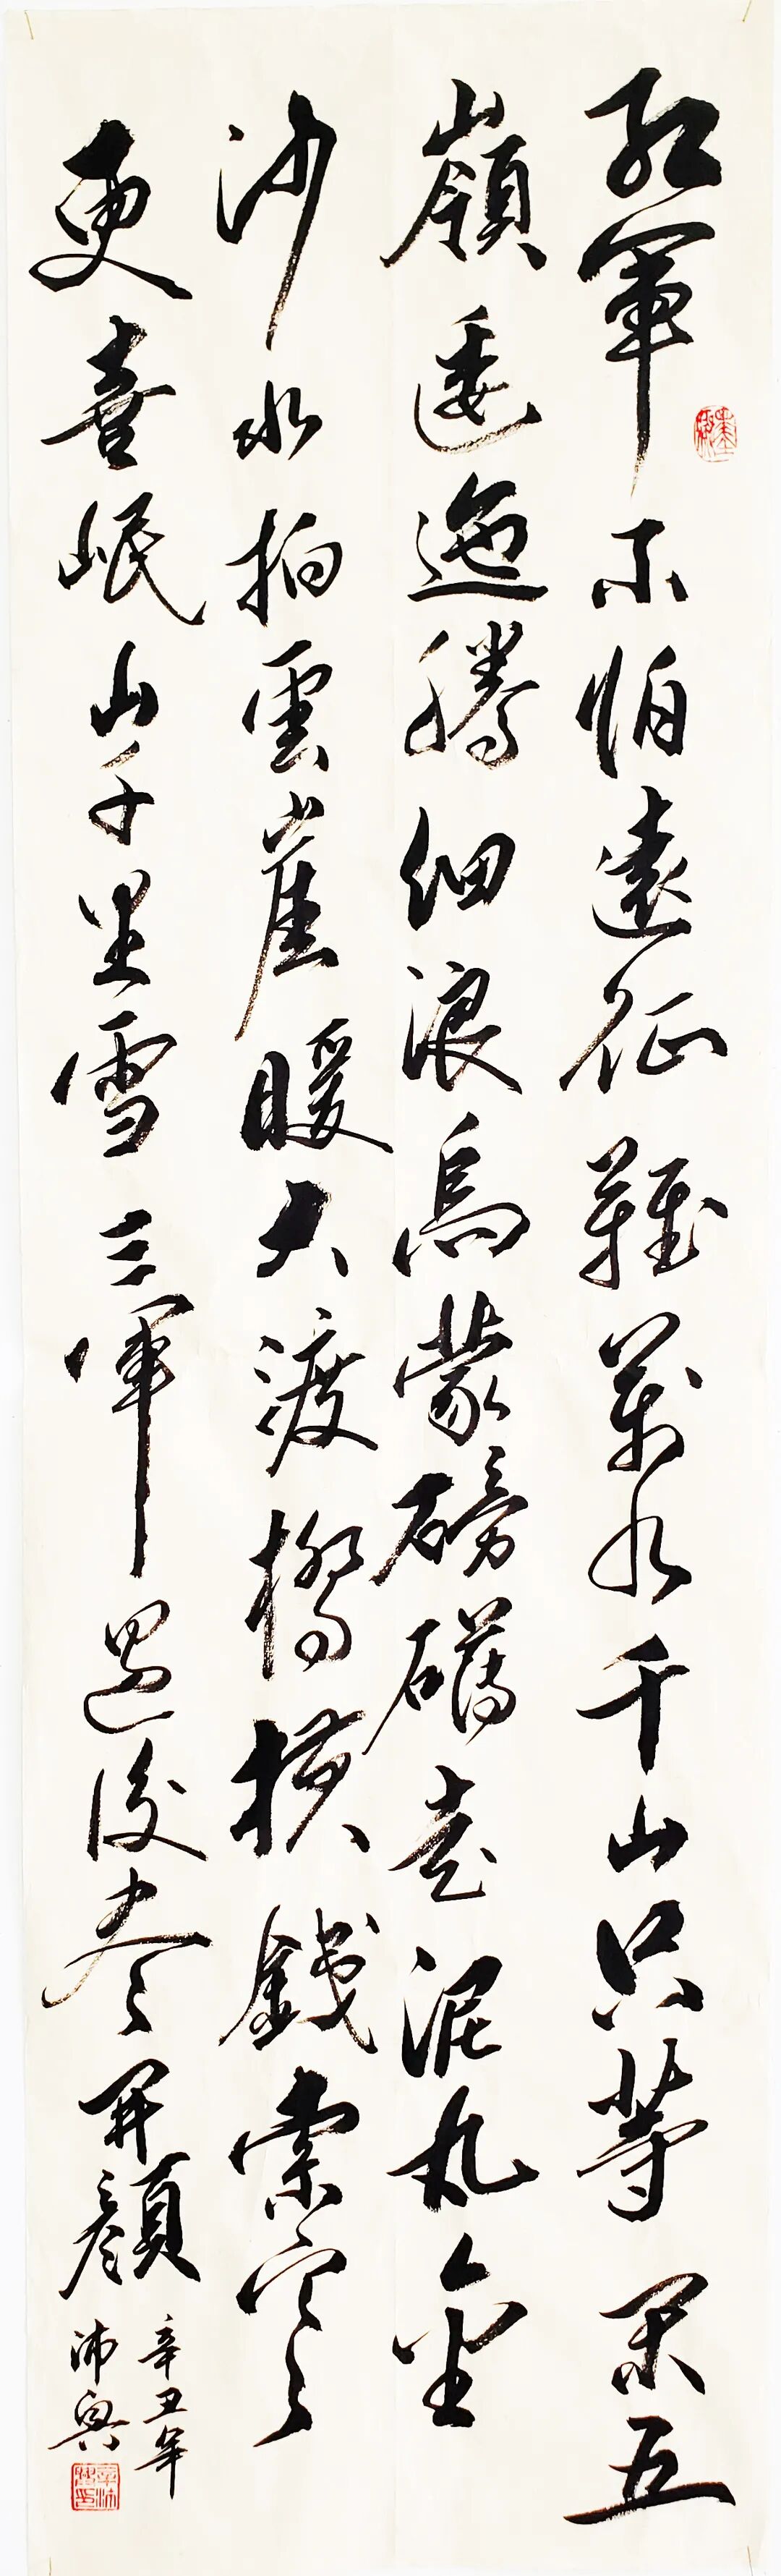 紅軍不怕遠征難萬水千山只等閑五
嶺逶迤騰細浪烏蒙磅礴走泥丸金
沙水拍雲崖暖大渡橋橫鐵索寒
更喜岷山千里雪三軍過後盡開顏
辛丑年
沛興